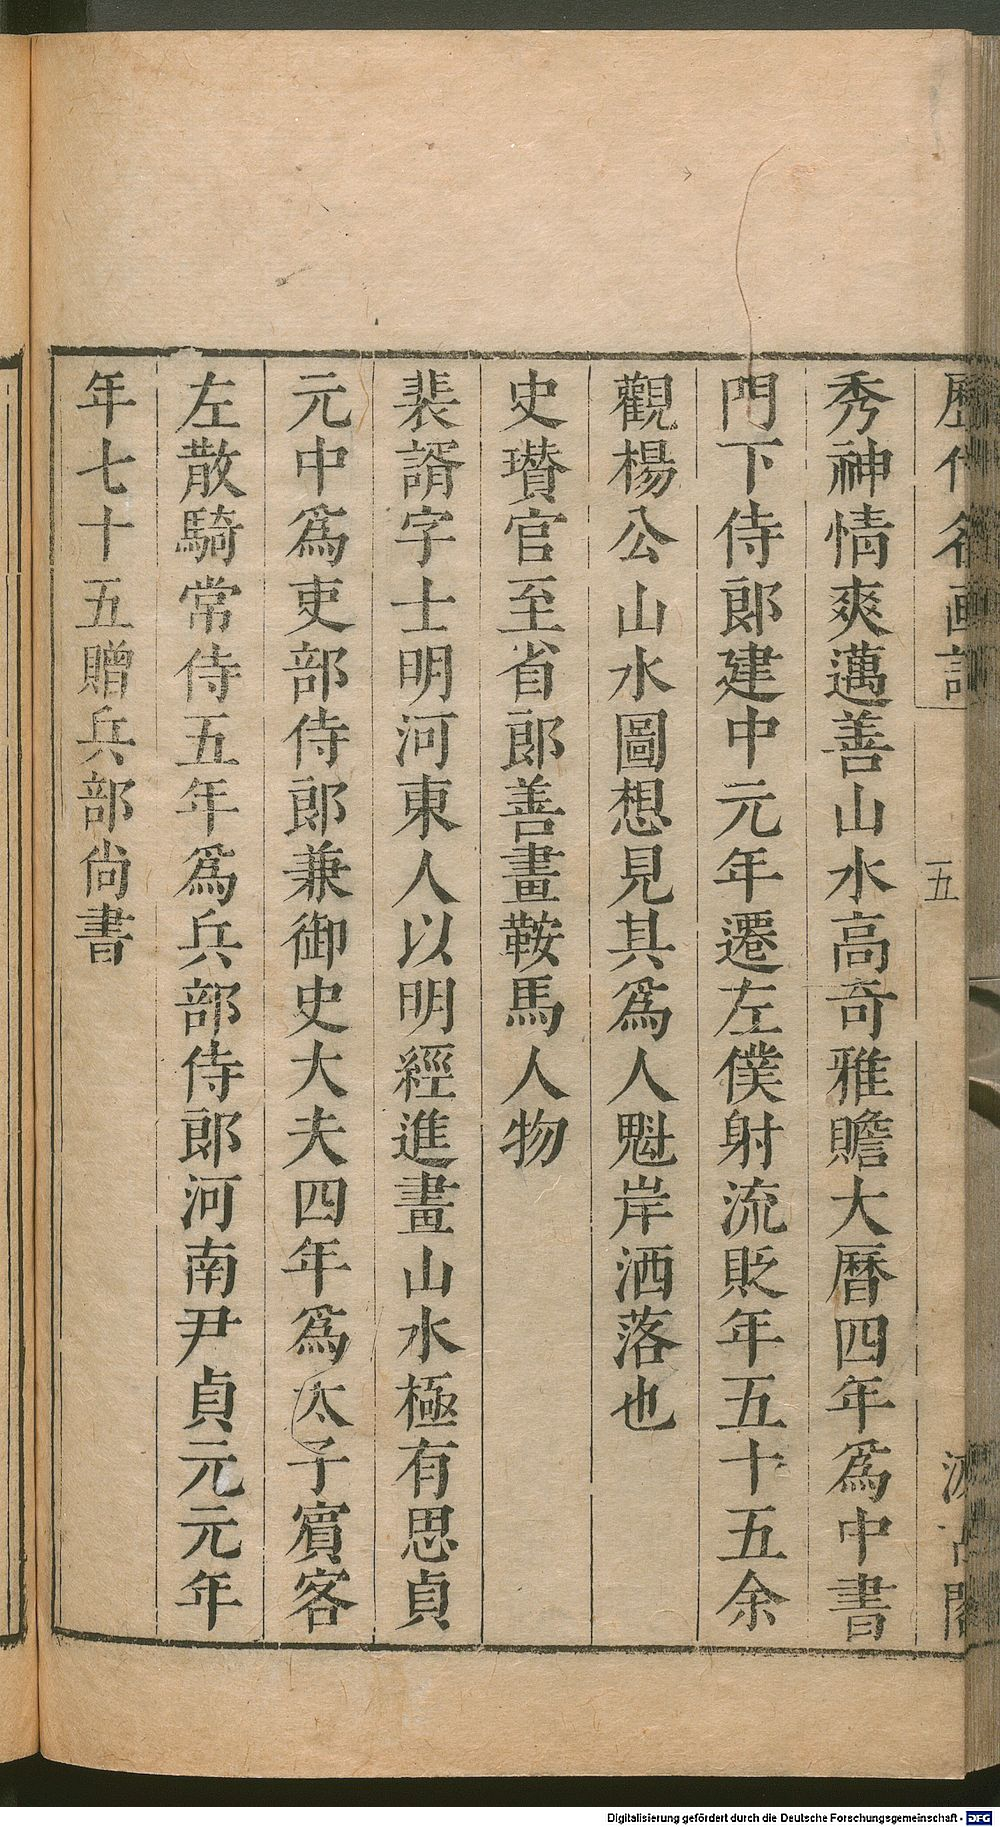 歷代名画記 五 汲古閣
秀神情爽邁善山水高奇雅贍大曆四年爲中書
門下侍郎建中元年遷左僕射流貶年五十五余
觀楊公山水圖想見其爲人魁岸洒落也
史瓚官至省郎善畫鞍馬人物
裴諝字士明河東人以明經進畫山水極有思貞
元中爲吏部侍郎兼御史大夫四年爲太子賔客
左散騎常侍五年爲兵部侍郎河南尹貞元元年
年七十五贈兵部尚書
Digitalisierung gefördert durch die Deutsche Forschungsgemeinschaft - DFG